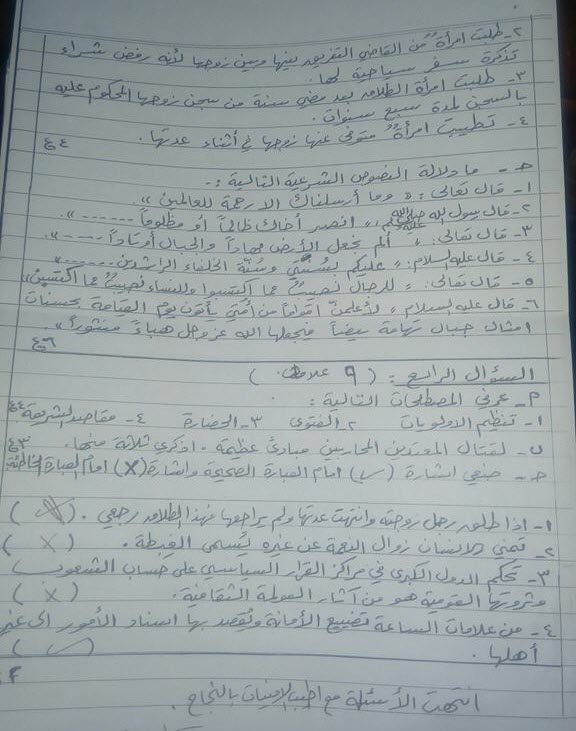 ٢- طلبت امرأة من القاضي التفريق بينها وبين زوجها لأنه رفض شراء
تذكرة سفر سياحية لها.
٣- طلبت امرأة الطلاق بعد مضي سنة من سجن زوجها المحكوم عليه
بالسجن لمدة سبع سنوات.
٤- تطيبت امرأة متوفى عنها زوجها في أثناء عدتها.
٤ع
ج- ما دلالة النصوص الشرعية التالية :-
١- قال تعالى : « وما أرسلناك الا رحمة للعالمين ».
٢- قال رسول الله صلى الله عليه وسلم « انصر أخاك ظالماً أو مظلوماً ------ ».
٣- قال تعالى : « ألم نجعل الأرض مهاداً والجبال أوتاداً ---- ».
٤- قال عليه السلام : « عليكم بسنتي وسنة الخلفاء الراشدين ------ »
٥- قال تعالى : « للرجال نصيب مما اكتسبوا وللنساء نصيب مما اكتسبن »
٦- قال عليه السلام « لأعلمن أقواماً من أمتي يأتون يوم القيامة بحسنات
امثال جبال تهامة بيضاً فيجعلها الله عز وجل هباءً منثوراً ».
٦ع
السؤال الرابع : ( ٩ علامات )
م- عرفي المصطلحات التالية :
١- تنظيم الاولويات ٢- الفتوى ٣- الحضارة ٤- مقاصد الشريعة ٤ع
ب- لقتال المعتدين المحاربين مبادئ عظيمة . اذكري ثلاثة منها. ٣ع
ج- ضعي اشارة (✓) امام العبارة الصحيحة واشارة (X) امام العبارة الخاطئة
١- اذا طلق رجل زوجته وانتهت عدتها ولم يراجعها فهذا الطلاق رجعي . ( )
٢- تمني الانسان زوال النعمة عن غيره يُسمى الغبطة . ( X )
٣- تحكم الدول الكبرى في مراكز القرار السياسي على حساب الشعوب
وثروتها القومية هو من آثار العولمة الثقافية. ( X )
٤- من علامات الساعة تضييع الأمانة ويُقصد بها اسناد الأمور الى غير
أهلها . ( ✓ )
انتهت الأسئلة مع اطيب الامنيات بالنجاح .